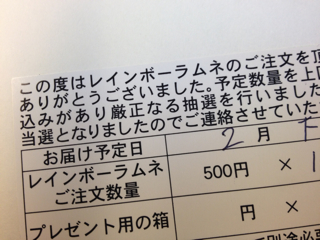 この度はレインボーラムネのご注文を頂
ありがとうございました。予定数量を上回
込みがあり厳正なる抽選を行いました
当選となりましたのでご連絡させていた
お届け予定日 2月下
レインボーラムネ
ご注文数量 500円 × 1
プレゼント用の箱 円 ×